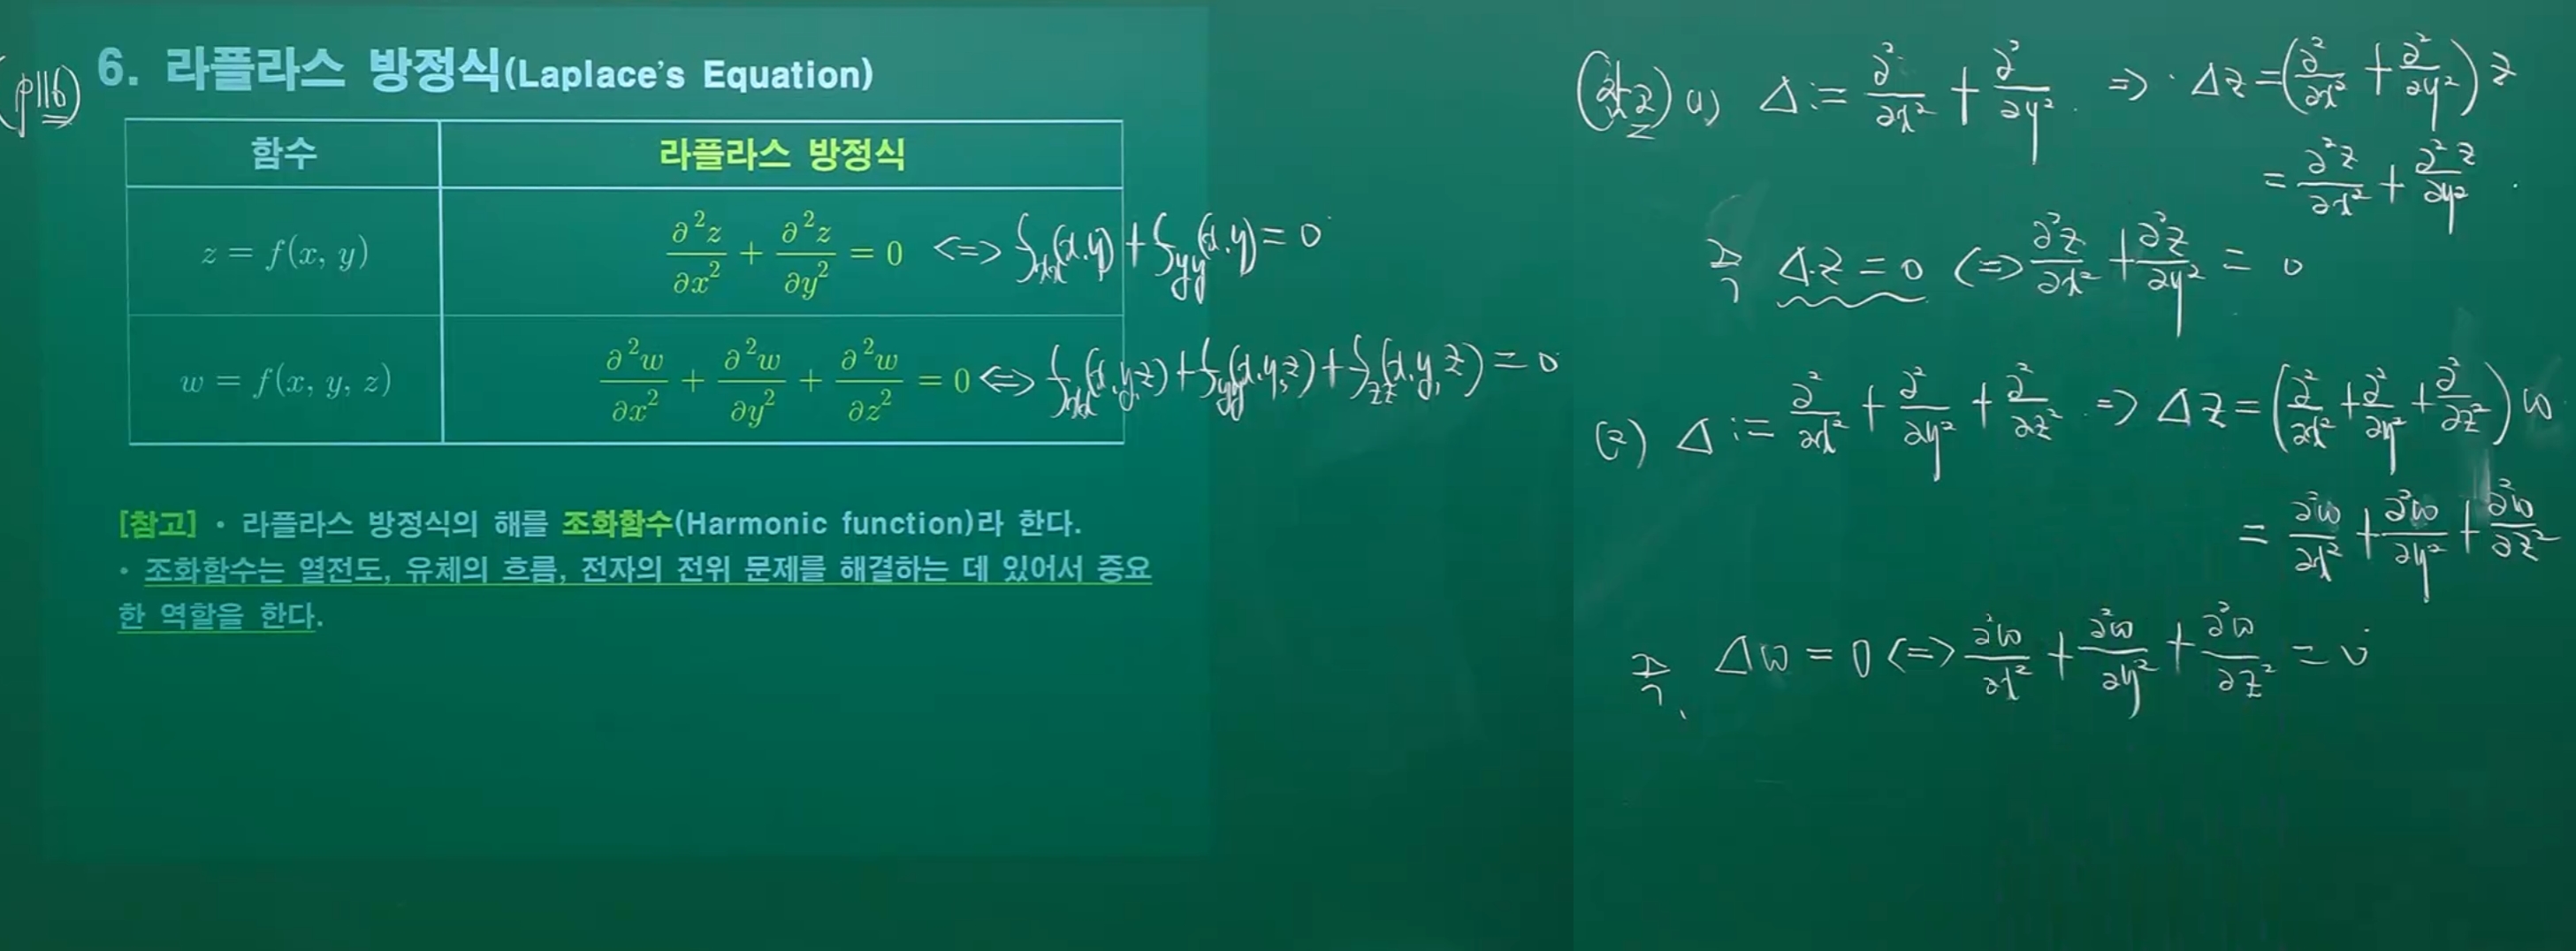 (p116)
6. 라플라스 방정식(Laplace's Equation)
함수 라플라스 방정식
z = f(x, y) ∂²z/∂x² + ∂²z/∂y² = 0 <=> f_xx(x,y) + f_yy(x,y) = 0
w = f(x, y, z) ∂²w/∂x² + ∂²w/∂y² + ∂²w/∂z² = 0 <=> f_xx(x,y,z) + f_yy(x,y,z) + f_zz(x,y,z) = 0
[참고] • 라플라스 방정식의 해를 조화함수(Harmonic function)라 한다.
• 조화함수는 열전도, 유체의 흐름, 전자의 전위 문제를 해결하는 데 있어서 중요
한 역할을 한다.
(1) Δ := ∂²/∂x² + ∂²/∂y² => Δz = (∂²/∂x² + ∂²/∂y²) z
= ∂²z/∂x² + ∂²z/∂y²
즉 Δz = 0 <=> ∂²z/∂x² + ∂²z/∂y² = 0
(2) Δ := ∂²/∂x² + ∂²/∂y² + ∂²/∂z² => Δz = (∂²/∂x² + ∂²/∂y² + ∂²/∂z²) w
= ∂²w/∂x² + ∂²w/∂y² + ∂²w/∂z²
즉, Δw = 0 <=> ∂²w/∂x² + ∂²w/∂y² + ∂²w/∂z² = 0